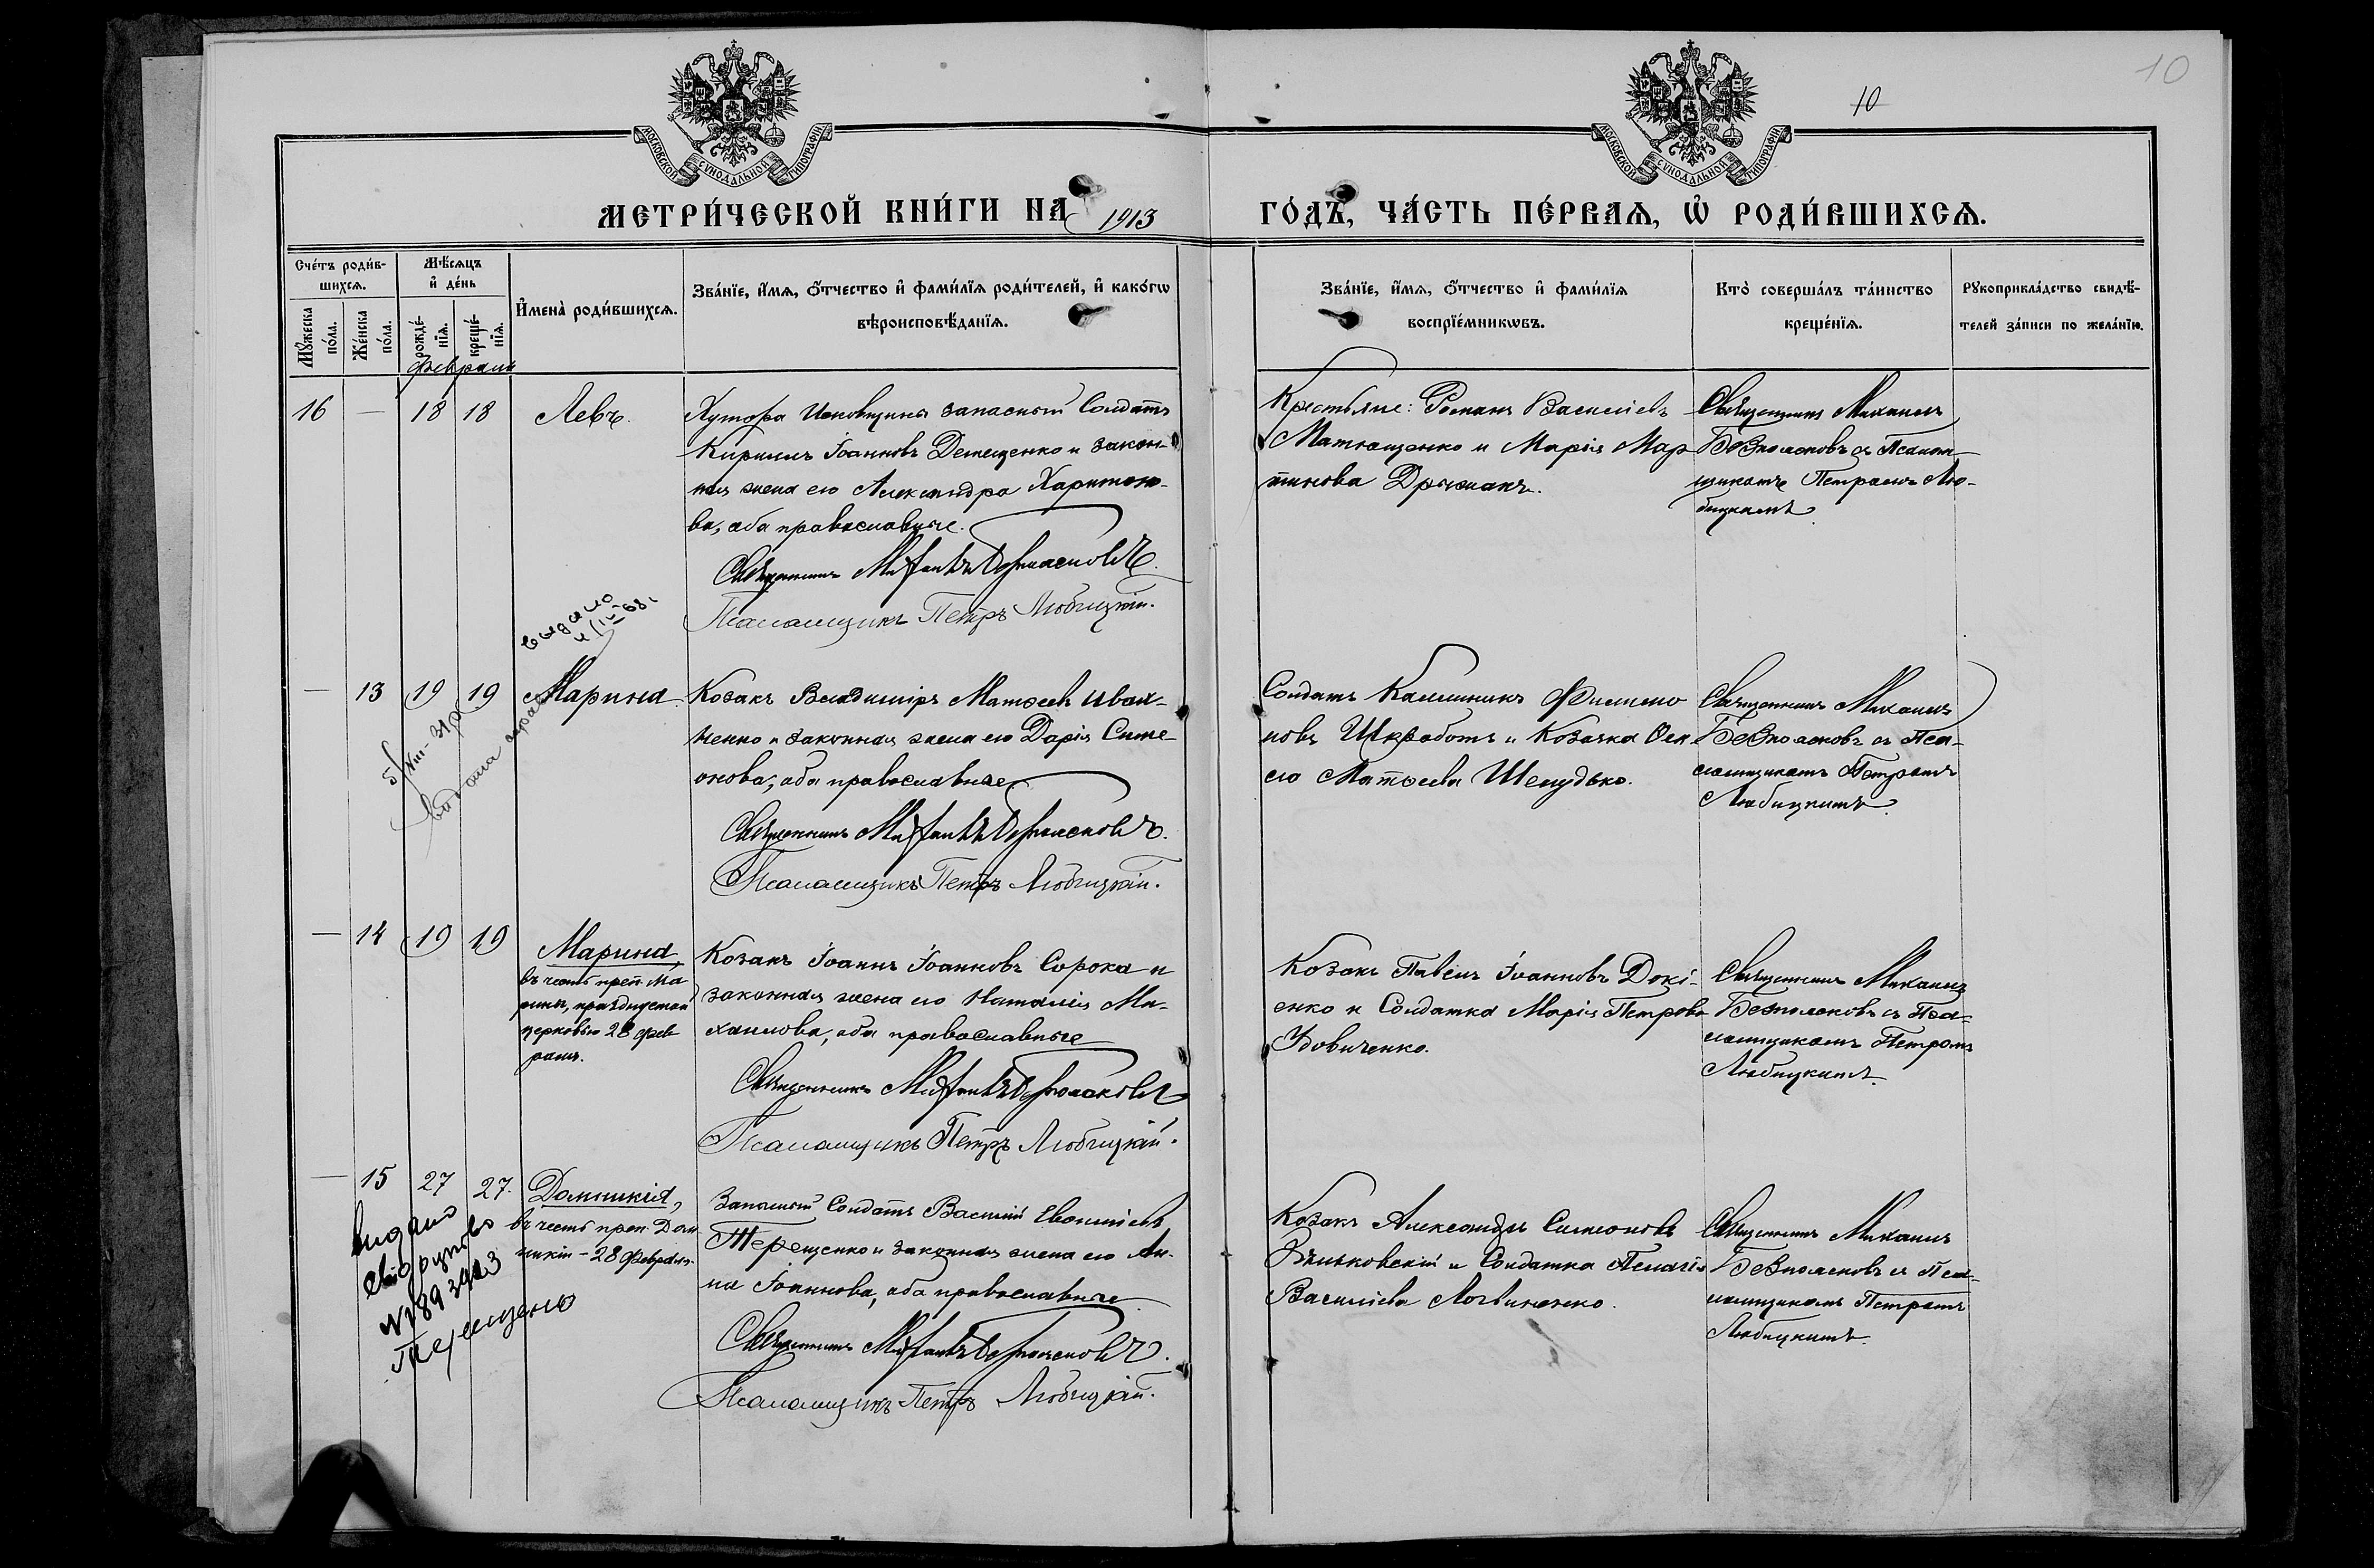 10
10
МОСКОВСКОЙ СѴНОДАЛЬНОЙ ТИПОГРАФІИ
МОСКОВСКОЙ СѴНОДАЛЬНОЙ ТИПОГРАФІИ
МЕТРИ́ЧЕСКОЙ КНИ́ГИ НА 1913 ГО́ДЪ, ЧА́СТЬ ПЕ́РВАѦ, Ѡ҆ РОДИ́ВШИХСѦ.
Сче́тъ роди́в-
шихсѧ.
Мꙋ́жеска по́ла.
Же́нска по́ла.
Мѣ́сѧцъ
и҆ де́нь
рожде́-
нїѧ.
креще́-
нїѧ.
И҆мена̀ роди́вшихсѧ.
Зва́нїе, и҆́мѧ, ѻ҆́тчество и҆ фами́лїѧ роди́телей, и҆ како́гѡ
вѣроисповѣ́данїѧ.
Зва́нїе, и҆́мѧ, ѻ҆́тчество и҆ фами́лїѧ
воспрїе́мникѡвъ.
Кто̀ соверша́лъ та́инство
креще́нїѧ.
Рꙋкоприкла́дство свидѣ́-
телей за́писи по жела́нїю.
Февраля
16 — 18 18 Левъ.
Хутора запасный Солдатъ
Кириллъ Іоанновъ Демещенко и закон-
ная жена его Александра Харитоно-
ва, оба православные.
Священникъ Михаилъ Безпоясковъ
Псаломщикъ Петръ Любицкій.
Крестьяне: Романъ Васильевъ
Матющенко и Марія Мар
тинова
Священникъ Михаилъ
Безпоясковъ съ Псалом-
щикомъ Петромъ Лю-
бицкимъ
выдано
IV-68.
— 13 19 19 Марина.
Козакъ Владиміръ Матѳеевъ Иван-
ченко и законная жена его Дарія Симе-
онова, оба православные
Священникъ Михаилъ Безпоясковъ.
Псаломщикъ Петръ Любицкій.
Солдатъ Каллиникъ Филимо
новъ Шкработъ и Козачка
Матѳеева Шепудько.
Священникъ Михаилъ
Безпоясковъ съ Пса-
ломщикомъ Петромъ
Любицкимъ.
— 14 19 19 Марина,
въ честь преп. Ма
рины, празднуемой
церковью 28 фев
раля.
Козакъ Іоаннъ Іоанновъ Сорока и
законная жена его Наталія Ми-
хаилова, оба православные
Священникъ Михаилъ Безпоясковъ
Псаломщикъ Петръ Любицкій.
Козакъ Павелъ Іоанновъ Докі-
енко и Солдатка Марія Петрова
Удовиченко.
Священникъ Михаилъ
Безпоясковъ съ Пса-
ломщикомъ Петромъ
Любицкимъ.
— 15 27 27. Домникія,
въ честь преп. Дом
никіи - 28 Февраля.
Запасный Солдатъ Василій
Терещенко и законная жена его Ан-
на Іоаннова, оба православные
Священникъ Михаилъ Безпоясковъ.
Псаломщикъ Петръ Любицкій.
Козакъ Александръ Симеоновъ
и Солдатка Пелагія
Василіева Логвиненко.
Священникъ Михаилъ
Безпоясковъ съ Пса-
ломщикомъ Петромъ
Любицкимъ.
видано